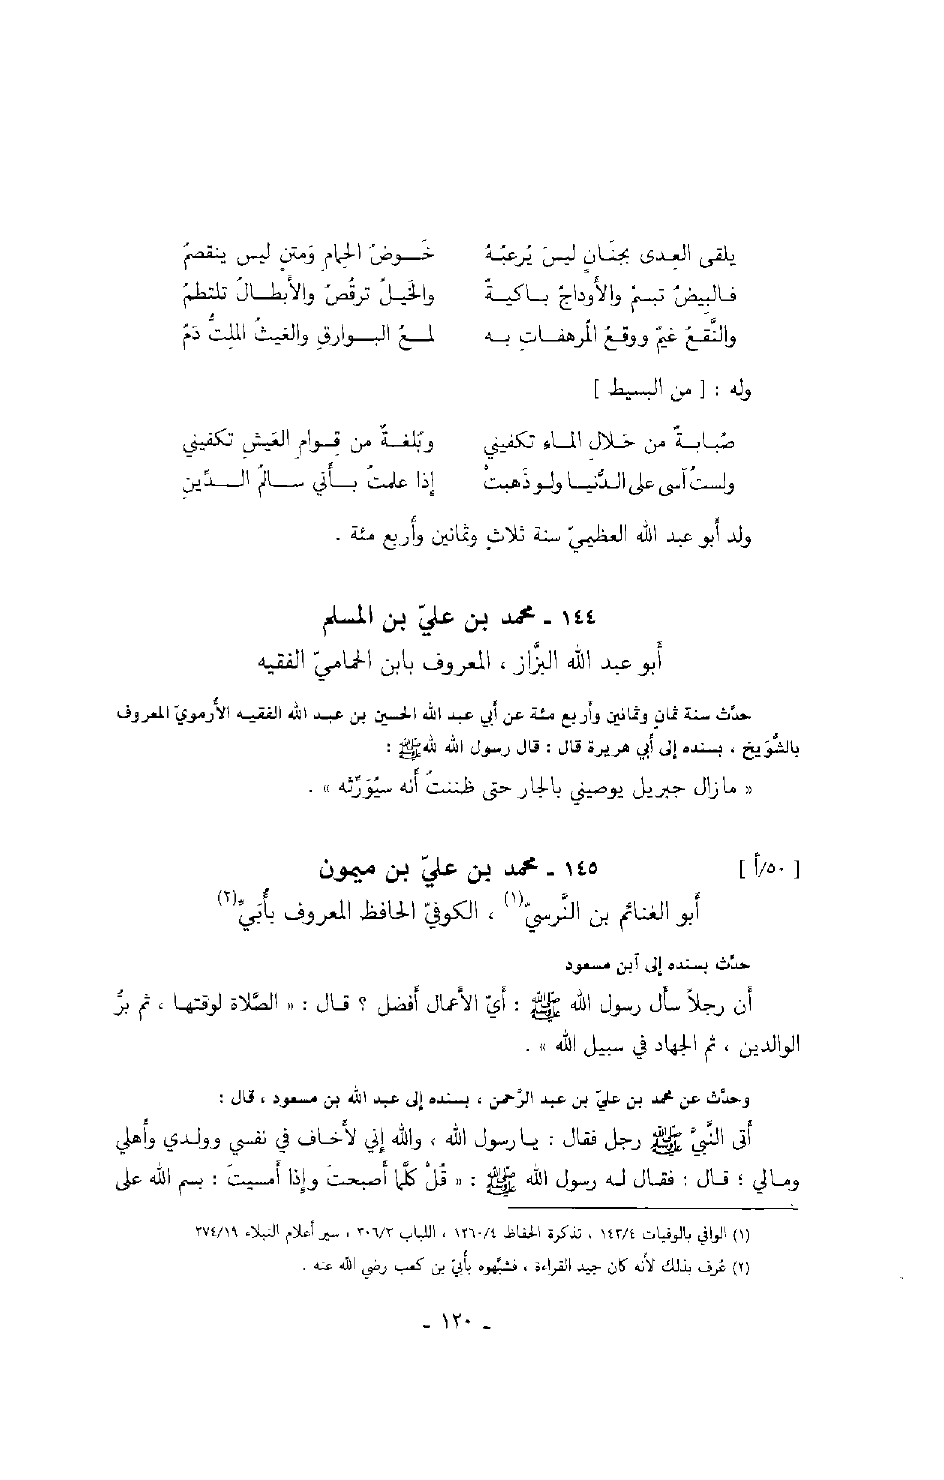 يلقى العِدى بجنَانٍ ليسَ يُرعبُهُ خَوضُ الحِمامِ وَمتنٍ ليس ينقصمُ
فالبيضُ تبسمُ والأوداجُ باكيةٌ والخيلُ ترقُصُ والأبطالُ تلتطمُ
والنَّقعُ غيمٌ ووقعُ المرهفاتِ به لمعُ البوارقِ والغيثُ الملِثُّ دَمُ
وله : [ من البسيط ]
صُبابةٌ من خلالِ الماءِ تكفيني وبُلغةٌ من قِوامِ العَيشِ تكفيني
ولستُ آسى على الدُّنيا ولو ذهبتْ إذا علمتُ بأني سالمُ الدِّينِ
ولد أبو عبد الله العظيميّ سنة ثلاثٍ وثمانين وأربع مئة .
١٤٤ ـ محمد بن عليّ بن المسلم
أبو عبد الله البزَّاز ، المعروف بابن الحماميّ الفقيه
حدَّث سنة ثمانٍ وثمانين وأربع مئة عن أبي عبد الله الحسين بن عبد الله الفقيه الأرمويّ المعروف
بالشُّوَيخ ، بسنده إلى أبي هريرة قال : قال رسول الله لله ﷺ :
« مازال جبريل يوصيني بالجار حتى ظننتُ أنه سيُوَرِّثه » .
[ ٥٠/أ ] ١٤٥ ـ محمد بن عليّ بن ميمون
أبو الغنائم بن النَّرسيّ(١) ، الكوفيّ الحافظ المعروف بأُبَيّ(٢)
حدَّث بسنده إلى آبن مسعود
أن رجلاً سأل رسول الله ﷺ : أيّ الأعمال أفضل ؟ قال : « الصَّلاة لوقتها ، ثم برُّ
الوالدين ، ثم الجهاد في سبيل الله » .
وحدَّث عن محمد بن عليّ بن عبد الرَّحمن ، بسنده إلى عبد الله بن مسعود ، قال :
أتى النَّبيَّ ﷺ رجل فقال : يارسول الله ، والله إني لأخاف في نفسي وولدي وأهلي
ومالي ؛ قال : فقال له رسول الله ﷺ : « قُلْ كلَّما أصبحتَ وإذا أمسيتَ : بسم الله على
(١) الوافي بالوفيات ١٤٣/٤ ، تذكرة الحفاظ ١٢٦٠/٤ ، اللباب ٣٠٦/٣ ، سير أعلام النبلاء ٢٧٤/١٩
(٢) عُرف بذلك لأنه كان جيد القراءة ، فشبَّهوه بأبيّ بن كعب رضي الله عنه .
ـ ١٢٠ ـ